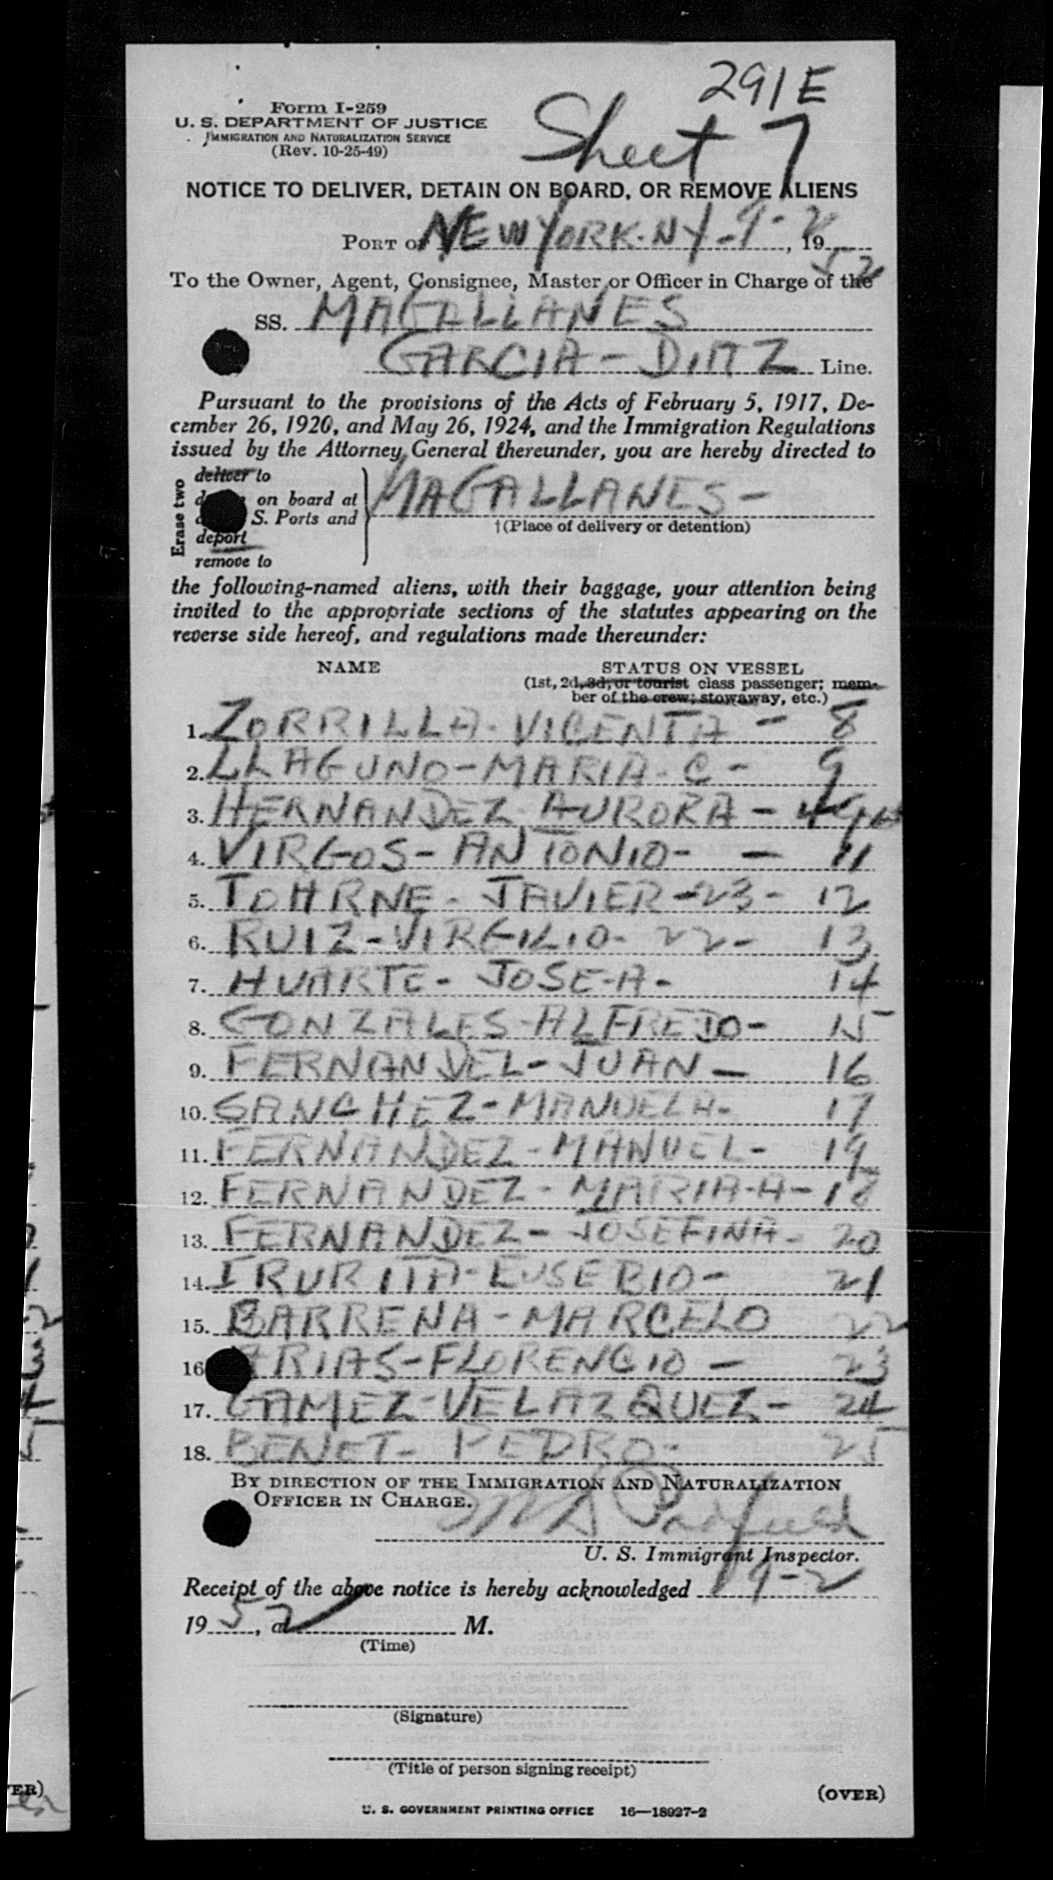 291E
Form I-259
U. S. DEPARTMENT OF JUSTICE
IMMIGRATION AND NATURALIZATION SERVICE
(Rev. 10-25-49)
Sheet 7
NOTICE TO DELIVER, DETAIN ON BOARD, OR REMOVE ALIENS
PORT OF NEW YORK-NY-9-2, 1952
To the Owner, Agent, Consignee, Master or Officer in Charge of the
SS. MAGALLANES
GARCIA-DIAZ Line.
Pursuant to the provisions of the Acts of February 5, 1917, De-
cember 26, 1920, and May 26, 1924, and the Immigration Regulations
issued by the Attorney General thereunder, you are hereby directed to
Erase two
deliver to
on board at
S. Ports and
deport
remove to
MAGALLANES-
†(Place of delivery or detention)
the following-named aliens, with their baggage, your attention being
invited to the appropriate sections of the statutes appearing on the
reverse side hereof, and regulations made thereunder:
NAME STATUS ON VESSEL
(1st, 2d, 3d, or tourist class passenger; mem-
ber of the crew; stowaway, etc.)
1. ZORRILLA-VICENTA - 8
2. LLAGUNO-MARIA-C- 9
3. HERNANDEZ-AURORA-
4. VIRGOS-ANTONIO- - 11
5. TOHRNE-JAVIER-23- 12
6. RUIZ-VIRGILIO-22- 13
7. HUARTE-JOSE-A- 14
8. GONZALES-ALFREDO- 15
9. FERNANDEL-JUAN- 16
10. SANCHEZ-MANUELA- 17
11. FERNANDEZ-MANUEL- 19
12. FERNANDEZ-MARIA-A-18
13. FERNANDEZ-JOSEFINA- 20
14. IRURITA-EUSEBIO- 21
15. BARRENA-MARCELO 22
16 ARIAS-FLORENCIO- 23
17. GAMEZ-VELAZQUEZ- 24
18. BENET-PEDRO- 25
BY DIRECTION OF THE IMMIGRATION AND NATURALIZATION
OFFICER IN CHARGE.
U. S. Immigrant Inspector.
Receipt of the above notice is hereby acknowledged 9-2
1952, at M.
(Time)
(Signature)
(Title of person signing receipt)
(OVER)
U. S. GOVERNMENT PRINTING OFFICE 16—18927-2